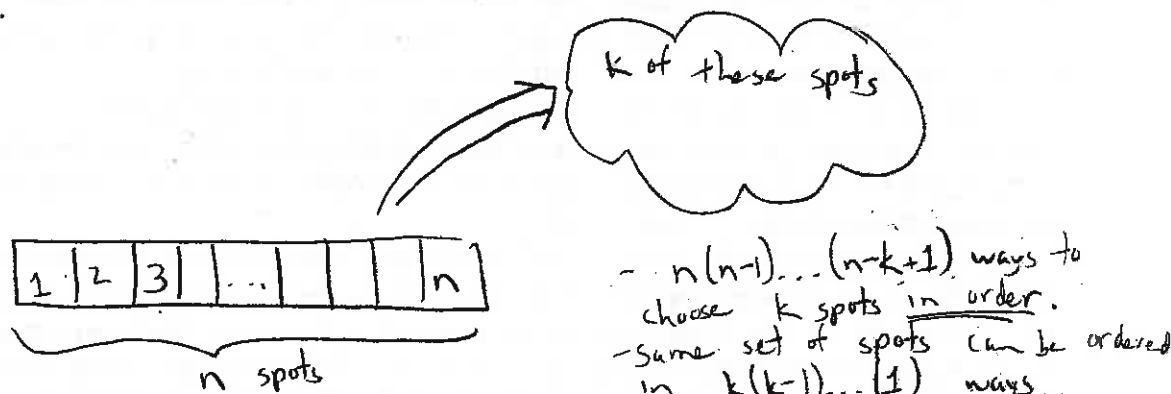 k of these spots
1 2 3 ... n
n spots
- n(n-1)...(n-k+1) ways to
choose k spots in order.
- same set of spots can be ordered
in k(k-1)...(1) ways